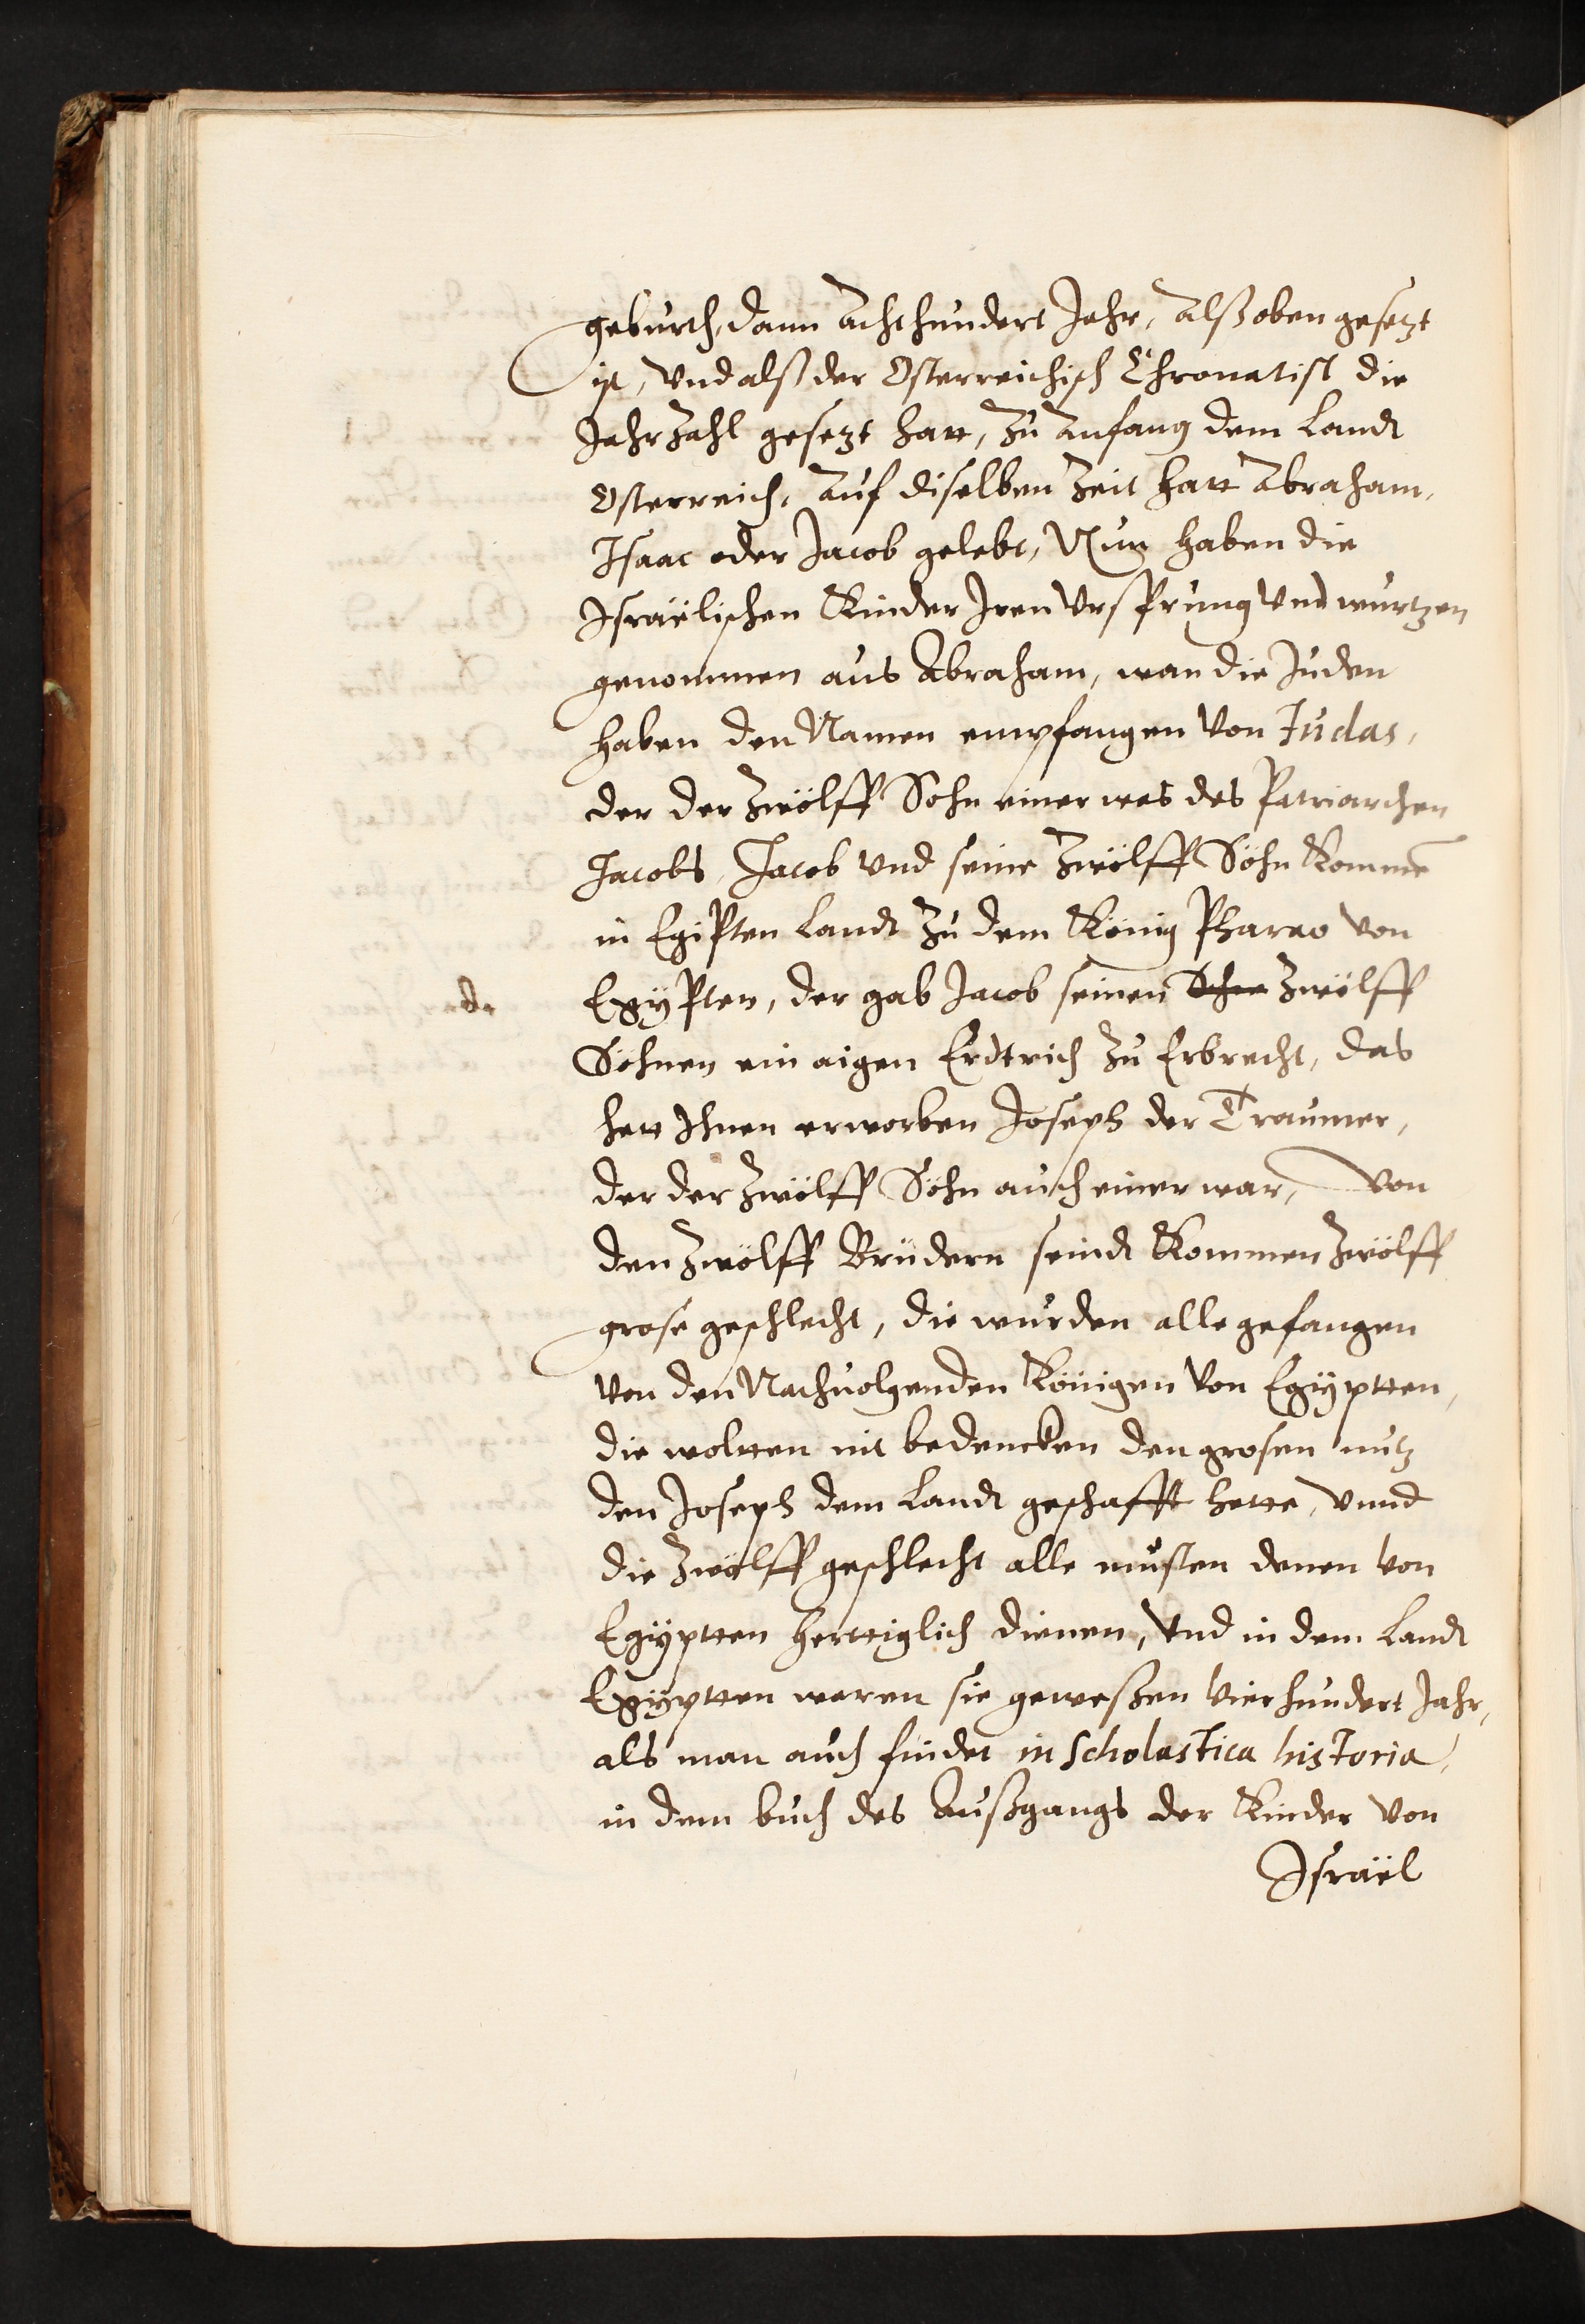 geburth, dann Achthundert Jahr, Alß oben gesetzt
ist, Vnd alß der Osterreichisch Chronatist die
Jahrzahl gesetzt hatt, Zu Anfang dem Landt
Osterreich, Auf diselben Zeit hatt Abraham,
Isaac oder Jacob gelebt, Nun haben die
Israëlischen Kinder Iren Vrsprung Vnd wurtzen
genommen aus Abraham, wan die Juden
haben den Namen empfangen Von Judas,
der der Zwölff Sohn einer was des Patriarchen
Jacobs, Jacob Vnd seine Zwölff Söhn Kommē
in Egipten Landt Zu dem König Pharao Von
Egÿpten, der gab Jacob seinen Zwölff
Söhnen ein aigen Erdtrich Zu Erbrecht, das
hett Ihnen erworben Joseph der Traumer,
der der Zwölff Söhn auch einer war, Von
den Zwölff Brüdern seindt Kommen Zwölff
grose geschlecht, die wurden alle gefangen
Von den Nachuolgenden Königen Von Egÿptten,
die woltten nit bedencken den grosen nutz
den Joseph dem Landt geschafft hette, Vnnd
die Zwölff geschlecht alle musten denen Von
Egÿptten herttiglich dienen, Vnd in dem Landt
Egÿptten waren sie geweßen Vierhundert Jahr,
als man auch findet in Scholastica historia,
in dem buch des Außgangs der Kinder Von
Israël